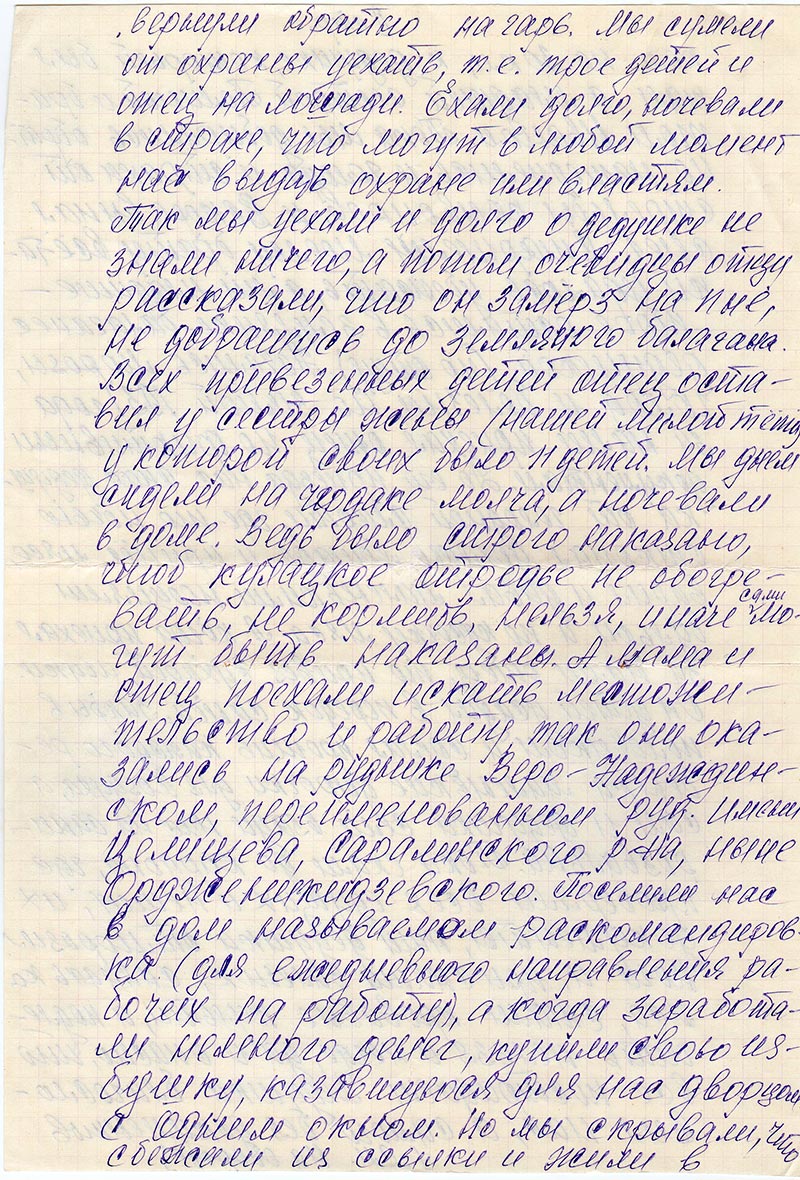 вернули обратно на гарь. Мы сумели
от охраны уехать, т.е. трое детей и
отец на лошади. Ехали долго, ночевали
в страхе, что могут в любой момент
нас выдать охране или властям.
Так мы уехали и долго о дедушке не
знали ничего, а потом очевидцы отцу
рассказали, что он замёрз на пне,
не добравшись до земляного балагана.
Всех привезенных детей отец оста-
вил у сестры жены (нашей милой тёти,
у которой своих было детей. Мы днём
сидели на чердаке молча, а ночевали
в доме. Ведь было строго наказано,
чтоб кулацкое отродье не обогре-
вать, не кормить, нельзя, иначе сами мо-
гут быть наказаны. А мама и
отец поехали искать местожи-
тельство и работу, так они ока-
зались на руднике Веро-Надеждин-
ском, переименованном руд. имени
Целищева, Саралинского р-на, ныне
Орджениκидзевского. Поселили нас
в дом называемом-раскомандиров-
ка (для ежедневного направления ра-
бочих на работу), а когда заработа-
ли немного денег, купили свою из-
бушку, казавшуюся для нас дворцом
с одним окном. Но мы скрывали, что
сбежали из ссылки и жили в